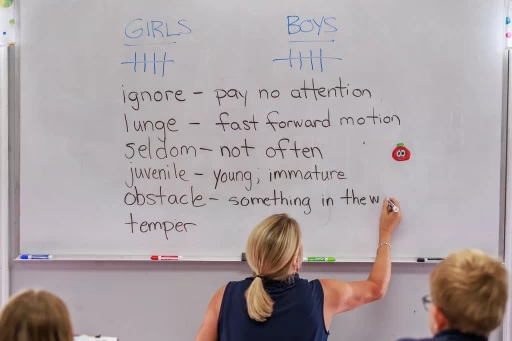 GIRLS BOYS
ignore - pay no attention
lunge - fast forward motion
seldom - not often
juvenile - young; immature
obstacle - something in the w
temper